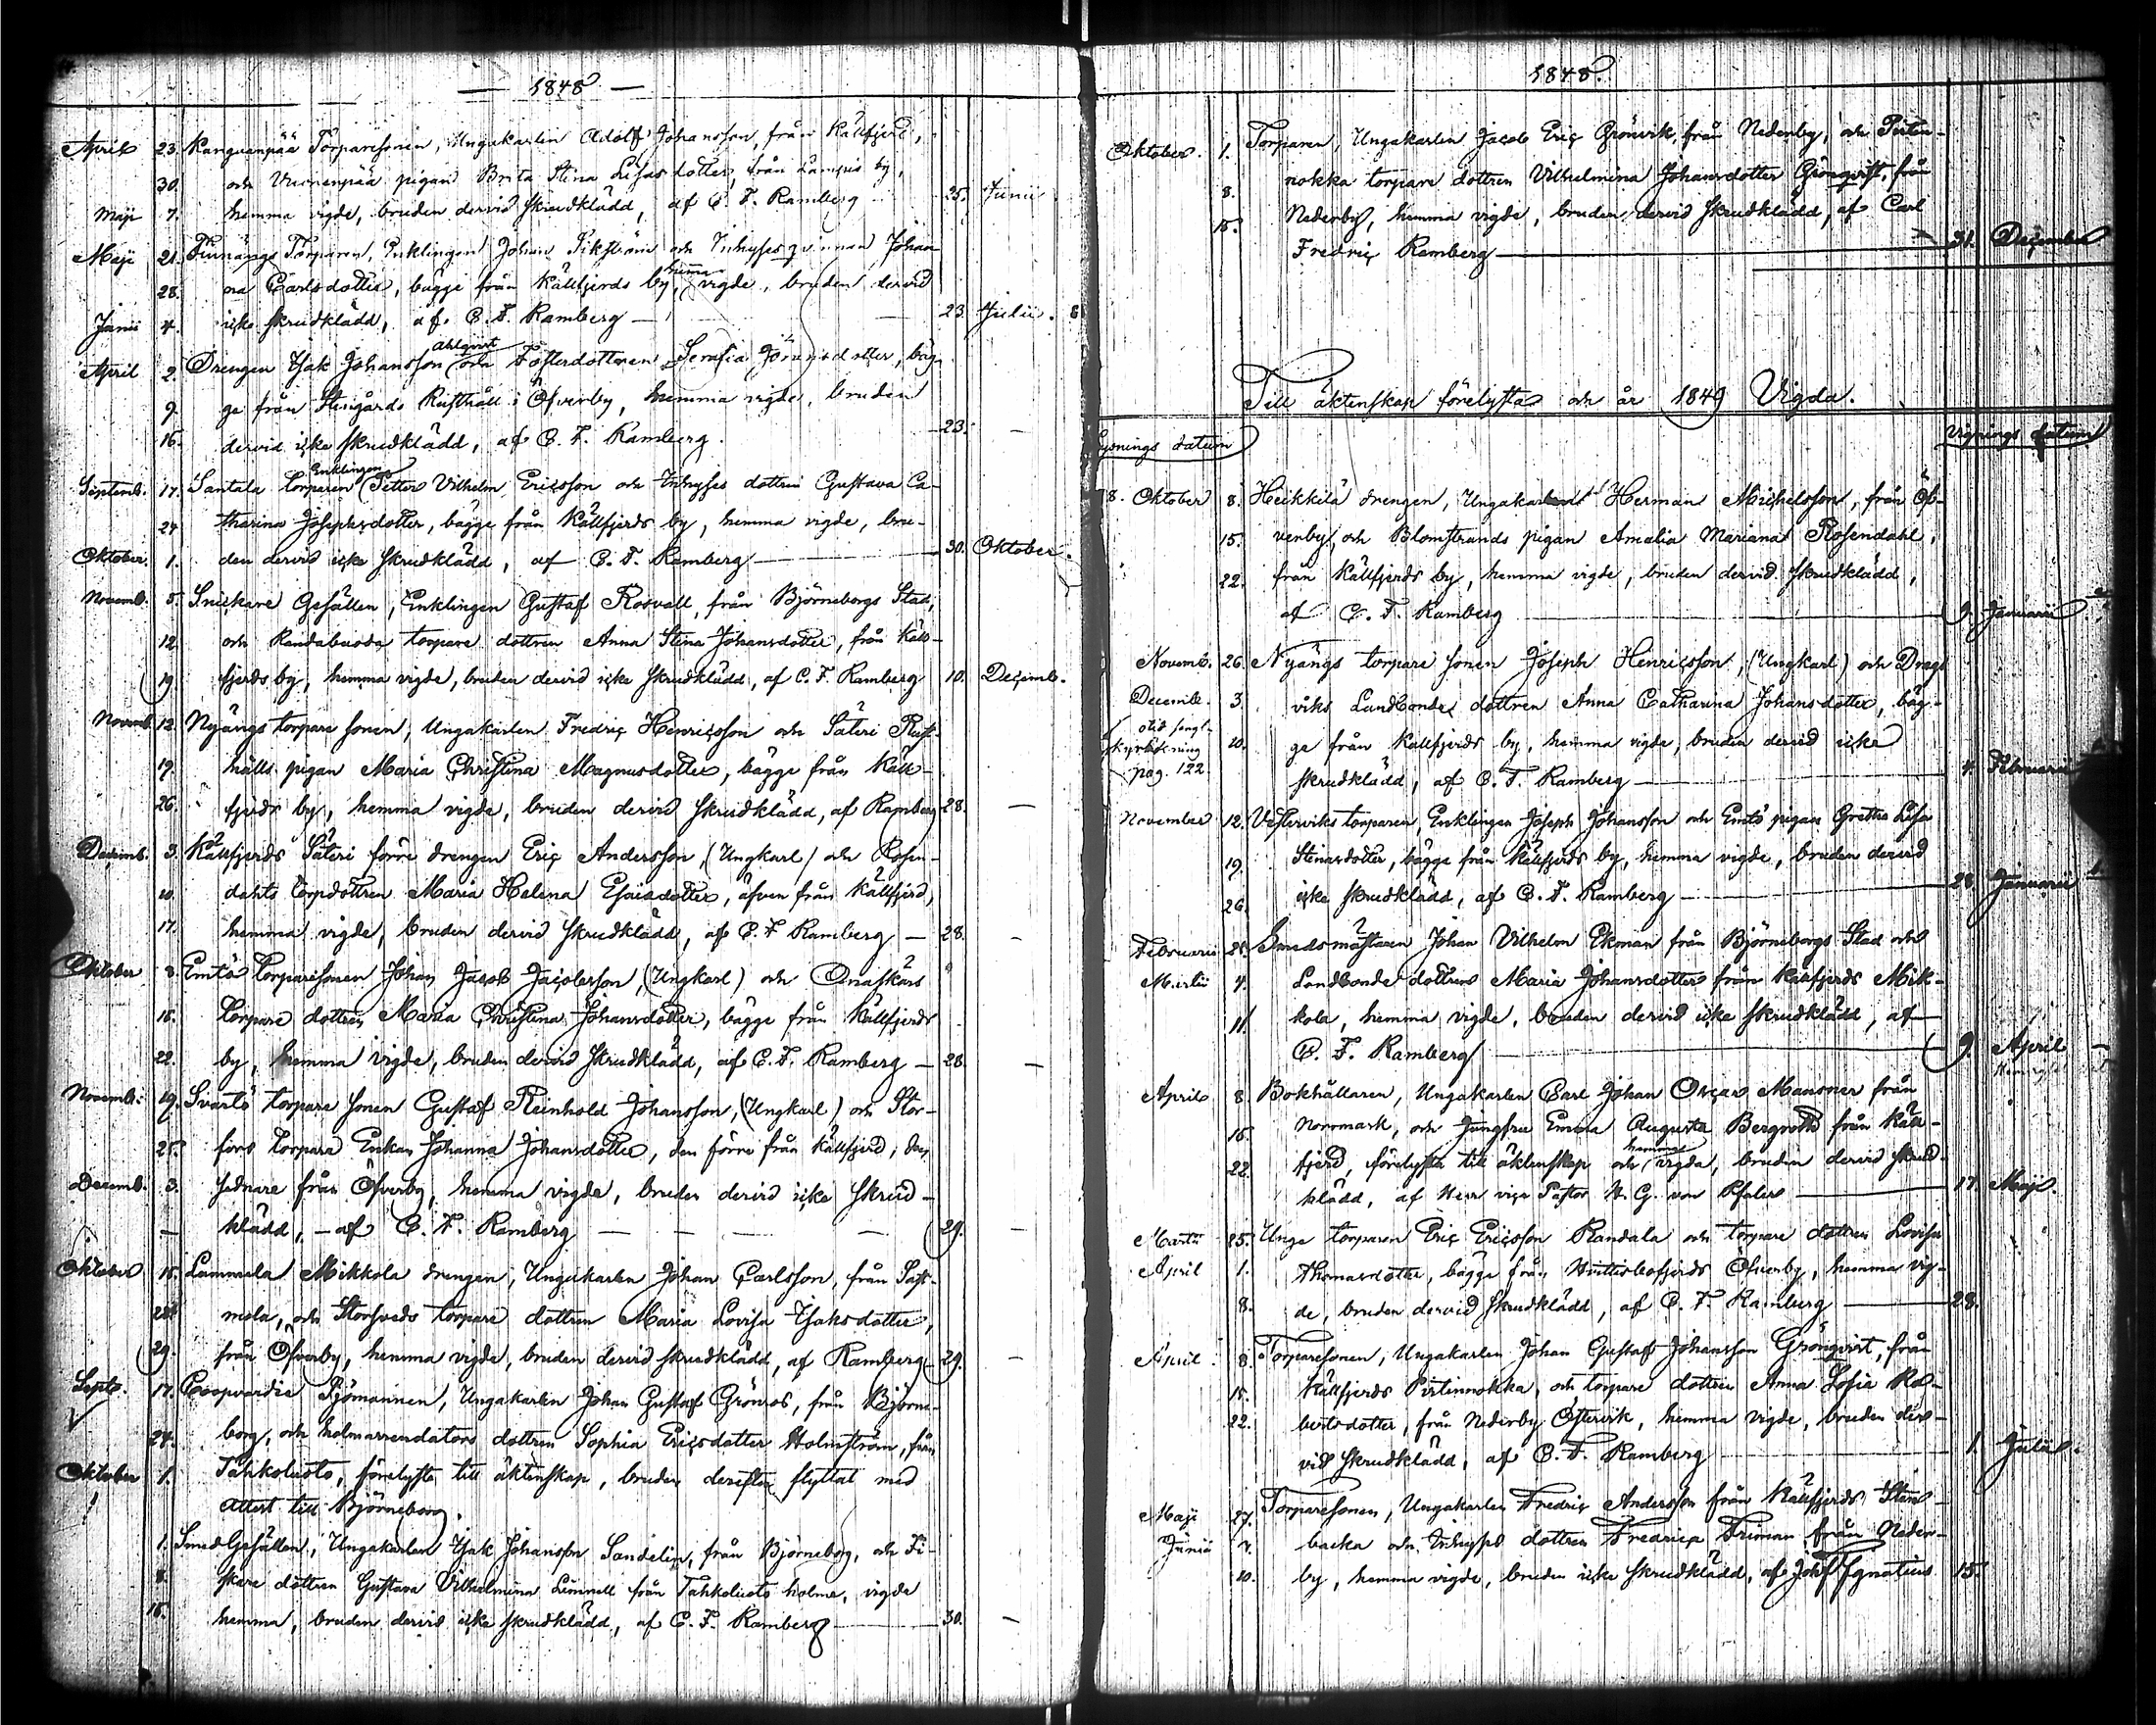 1848
April 23. Kanguenpää Torparesonen, Ungakarlen Adolf Johansson, från Källfjerd,
30. och pigan Brita Stina Lisasdotter, från Lampis by,
Maji 7. hemma vigde, bruden dervid skrudklädd, af C. F. Ramberg 25. Junii
Maji 21. Torparen, Enklingen Johan Sikström och Inhysesqvinnan Johan-
28. na Carlsdotter, bägge från Källfjerds by, hemma vigde, bruden dervid
Junii 4. icke skrudklädd, af C. F. Ramberg 23. Julii.
April 2. Drengen Isak Johansson Ahlqvist och Fosterdottren Serafia Johansdotter, bäg-
9. ge från Stengårds Rusthåll i Öfverby, hemma vigde, bruden
16. dervid icke skrudklädd, af C. F. Ramberg. 23. —
Septemb. 17. Santala torparen Enklingen Petter Vilhelm Ericsson och Inhyses dottren Gustava Ca-
24. tharina Josephsdotter, bägge från Källfjerds by, hemma vigde, bru-
Oktober. 1. den dervid icke skrudklädd, af C. F. Ramberg 30. Oktober.
Novemb. 5. Snickare Gesällen, Enklingen Gustaf Rosvall, från Björneborgs Stad,
12. och torpare dottren Anna Stina Johansdotter, från Käll-
19. fjerds by, hemma vigde, bruden dervid icke skrudklädd, af C. F. Ramberg 10. Decemb.
Novemb. 12. Nyängs torpare sonen, Ungakarlen Fredric Henricsson och Säteri Rust-
19. hålls pigan Maria Christina Magnusdotter, bägge från Käll-
26. fjerds by, hemma vigde, bruden dervid skrudklädd, af Ramberg 28. —
Decemb. 3. Källfjerds Säteri förre drengen Eric Andersson, (Ungkarl) och Rosen-
10. dahls torpdottren Maria Helena Esaiasdotter, äfven från Källfjerd,
17. hemma vigde, bruden dervid skrudklädd, af C. F. Ramberg — 28. —
Oktober 8. Emtö Torparesonen Johan Jacob Jacobsson, (Ungkarl) och
15. torpare dottren Maria Christina Johansdotter, bägge från Källfjerds
22. by, hemma vigde, bruden dervid skrudklädd, af C. F. Ramberg — 28. —
Novemb. 19. Svartö torpare sonen Gustaf Reinhold Johansson, (Ungkarl) och Stor-
25. fors torpare Enkan Johanna Johansdotter, den förre från Källfjerd, den
Decemb. 3. sednare från Öfverby, hemma vigde, bruden dervid icke skrud-
— klädd, — af C. F. Ramberg — — — — 29. —
Oktober 15. Lammela Mikkola drengen, Ungakarlen Johan Carlsson, från Sast-
22. mola, och Storsveds torpare dottren Maria Lovisa Isaksdotter,
29. från Öfverby, hemma vigde, bruden dervid skrudklädd, af Ramberg 29. —
Septb. 17. Coopvardie Sjömannen, Ungakarlen Johan Gustaf Grönros, från Björne-
24. borg, och holmarrendators dottren Sophia Ericsdotter Holmström, från
Oktober 1. Tahkoluoto, förelyste till äktenskap, bruden derefter flyttat med
attest till Björneborg.
1. Smed Gesällen, Ungakarlen Isak Johansson Sandelin, från Björneborg, och Fi-
8. skare dottren Gustava Vilhelmina från Tahkoluoto holme, vigde
15. hemma, bruden dervid icke skrudklädd, af C. F. Ramberg 30. —
1848.
Oktober. 1. Torparen, Ungakarlen Jacob Eric Grönvik, från Nederby, och Pirtin-
8. nokka torpare dottren Vilhelmina Johansdotter Grönqvist, från
15. Nederby, hemma vigde, bruden dervid skrudklädd, af Carl
Fredric Ramberg 31. December
Till äktenskap förelysta och år 1849 Vigda.
Lysnings datum Vignings datum
Oktober 8. Heikkilä drengen, Ungakarlen Herman Michelsson, från Öf-
15. verby, och Blomstrands pigan Amalia Mariana Rosendahl,
22. från Källfjerds by, hemma vigde, bruden dervid skrudklädd,
af C. F. Ramberg 9. Januarii
Novemb. 26. Nyängs torpare sonen Joseph Henricsson, (Ungkarl) och Drags-
Decemb. 3. viks Landbonde dottren Anna Catharina Johansdotter, bäg-
10. ge från Källfjerds by, hemma vigde, bruden dervid icke
pag. 122. skrudklädd, af C. F. Ramberg 4. Februarii
November 12. Vesterviks torparen, Enklingen Joseph Johansson och Emtö pigan Gretha Lisa
19. Stinasdotter, bägge från Källfjerds by, hemma vigde, bruden dervid
26. icke skrudklädd, af C. F. Ramberg 28. Januarii
Februarii 25. Smedsmästaren Johan Vilhelm Ekman från Björneborgs Stad och
Martii 4. Landbonde dottren Maria Johansdotter från Källfjerds Mik-
11. kola, hemma vigde, bruden dervid icke skrudklädd, af
C. F. Ramberg 9. April
April 8. Bokhållaren, Ungakarlen Carl Johan Oscar Mansner från
15. Norrmark, och Jungfru Emma Augusta Bergroth från Käll-
22. fjerd, förelyste till äktenskap och hemma vigda, bruden dervid skrud-
klädd, af Herr vice Pastor N. G. von Pfaler 17. Maji.
Martii 25. Unge torparen Eric Ericsson Randala och torpare dottren Lovisa
April 1. Thomasdotter, bägge från Hvittisbofjerds Öfverby, hemma vig-
8. de, bruden dervid skrudklädd, af C. F. Ramberg 28.
April. 8. Torparesonen, Ungakarlen Johan Gustaf Johansson Grönqvist, från
15. Källfjerds Pirtinnokka, och torpare dottren Anna Sofia Ro-
22. bertsdotter, från Nederby Östervik, hemma vigde, bruden der-
vid skrudklädd, af C. F. Ramberg 1. Julii.
Maji 27. Torparesonen, Ungakarlen Fredric Andersson från Källfjerds
Junii backa och Inhyses dottren Fredrica Friman från Neder-
10. by, hemma vigde, bruden icke skrudklädd, af Ignatius 15.